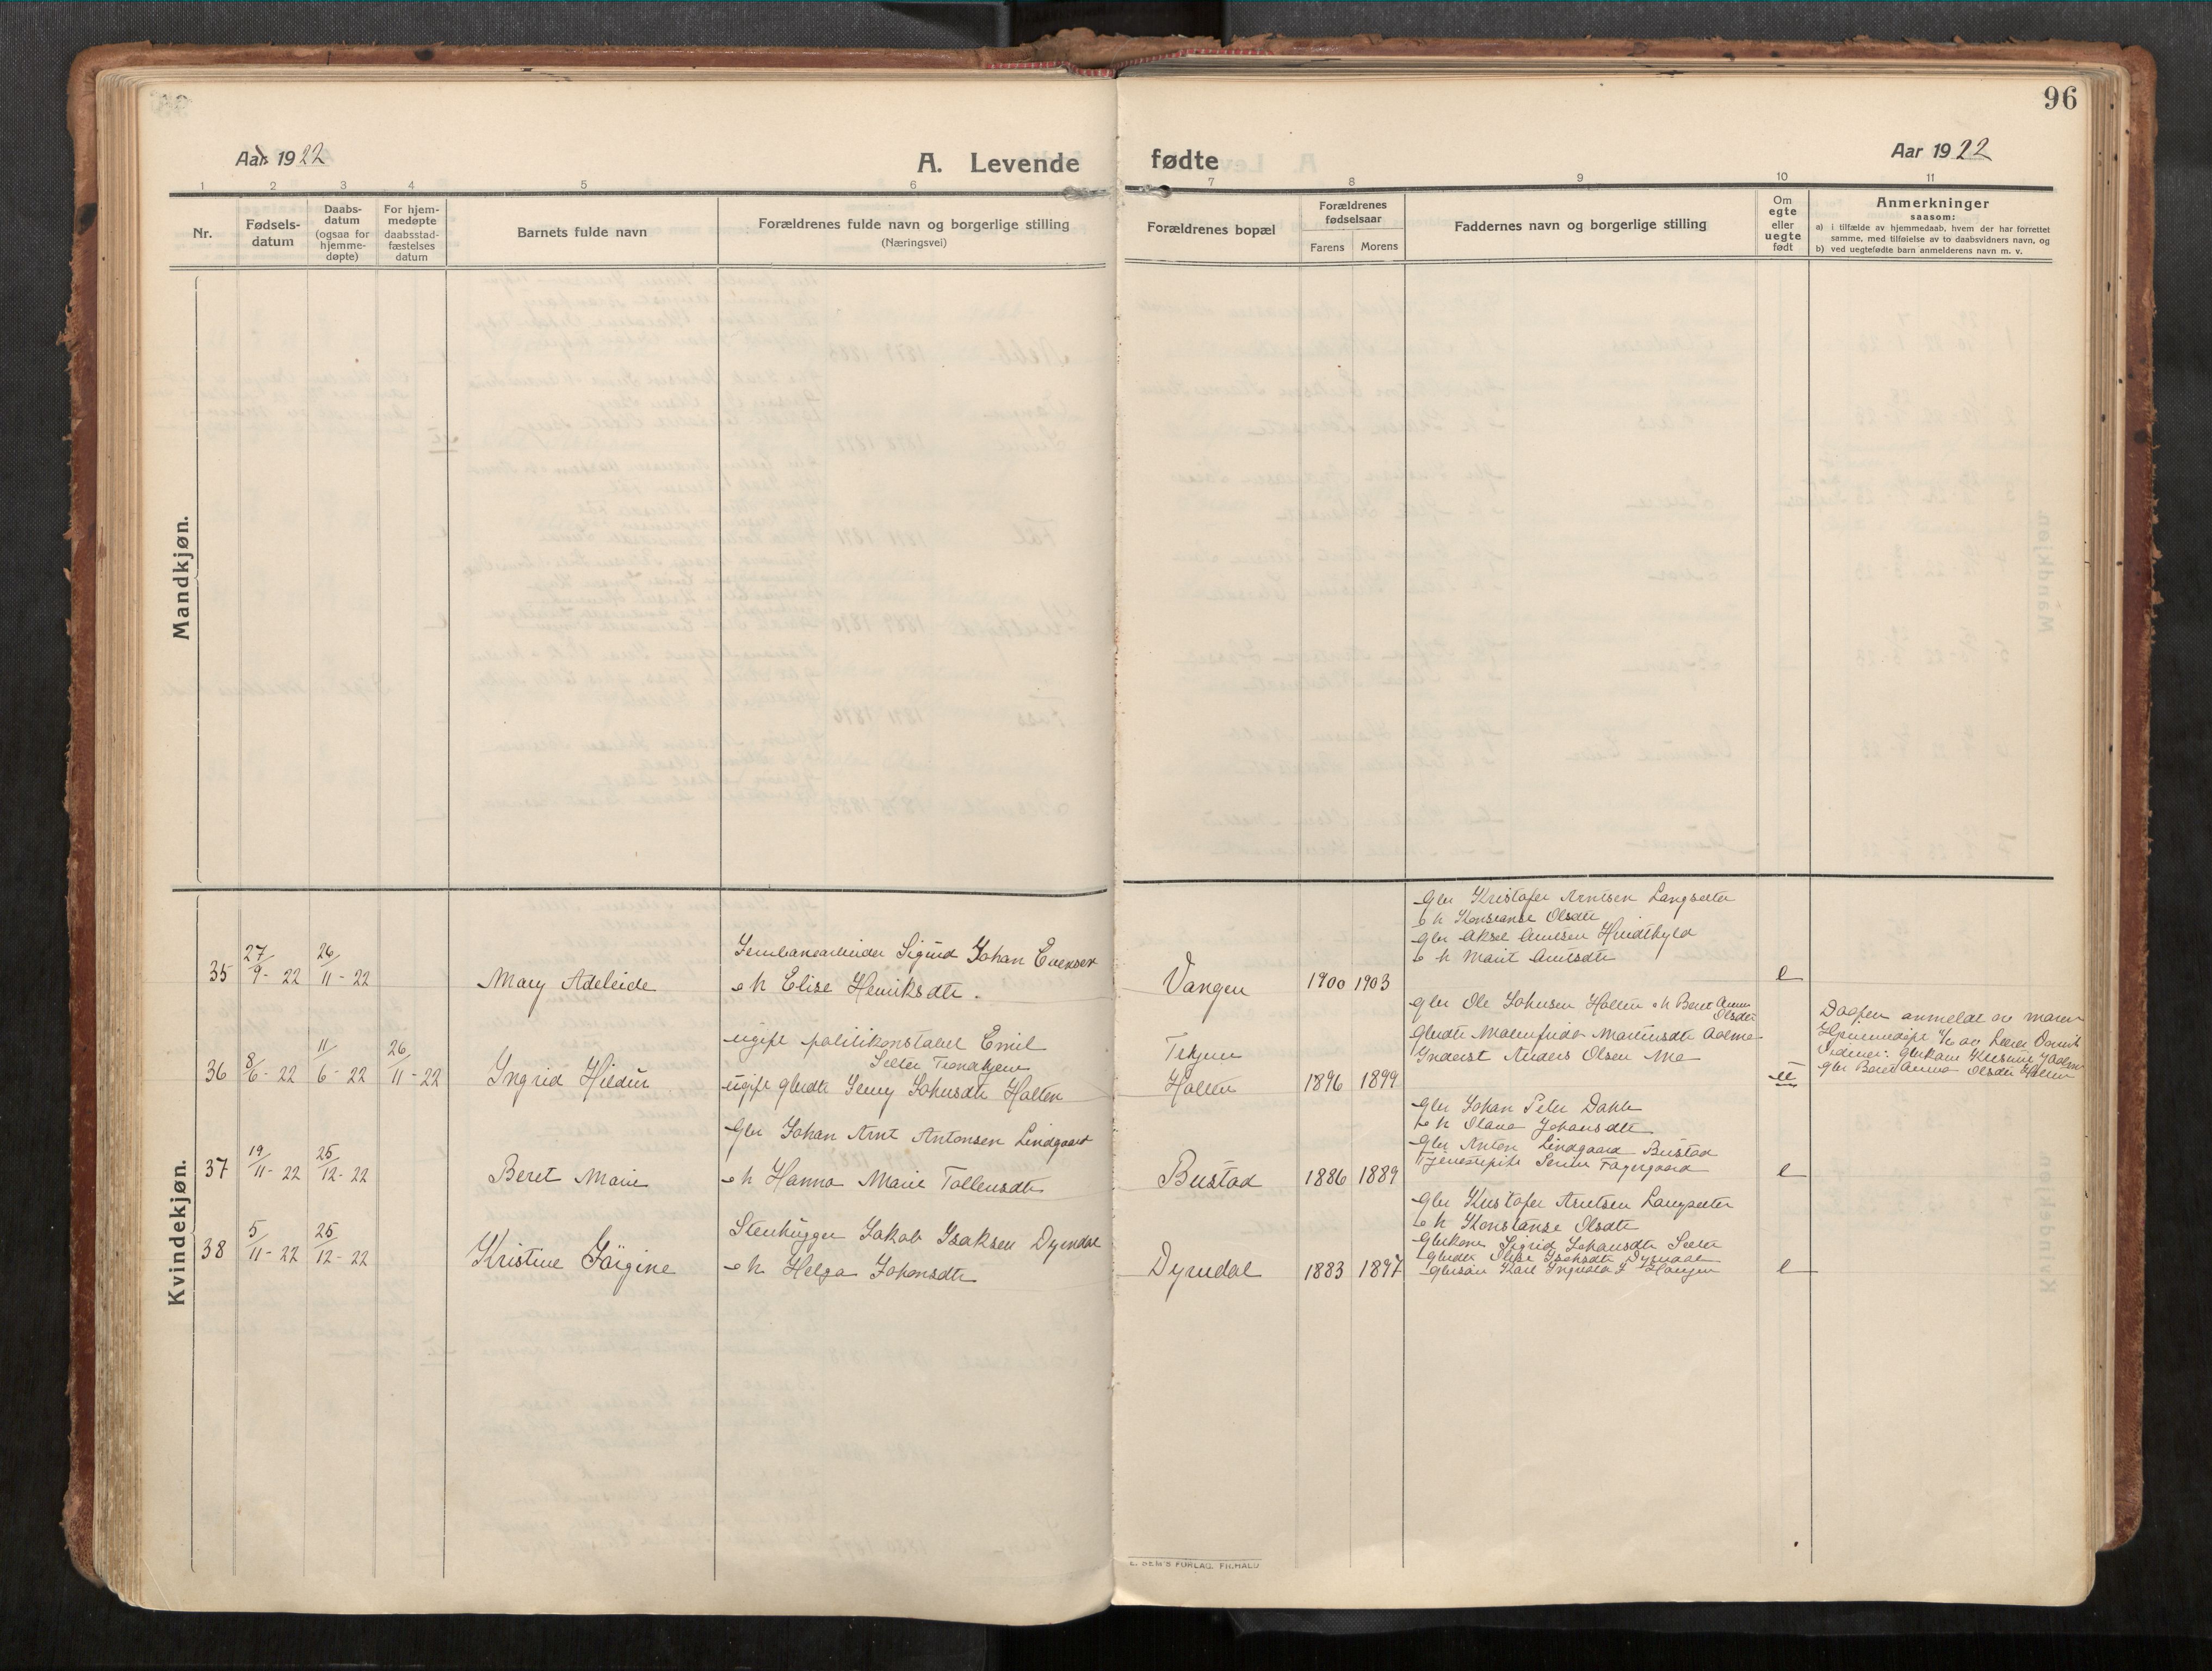 96
Aar 1922
A. Levende
fødte
Aar 1922
1 2 3 4 5 6 7 8 9 10 11
Nr.
Fødsels-
datum
Daabs-
datum
(ogsaa for
hjemme-
døpte)
For hjem-
medøpte
daabsstad-
fæstelses
datum
Barnets fulde navn
Forældrenes fulde navn og borgerlige stilling
(Næringsvei)
Forældrenes bopæl
Forældrenes
fødselsaar
Farens Morens
Faddernes navn og borgerlige stilling
Om
egte
eller
uegte
født
Anmerkninger
saasom:
a) i tilfælde av hjemmedaab, hvem der har forrettet
samme, med tilføielse av to daabsvidners navn, og
b) ved uegtefødte barn anmelderens navn m. v.
Mandkjøn.
Kvindekjøn.
35 27/9-22 26/11-22
Mary Adeleide
Sigurd Johan
o h Elise Henriksdtr.
Vangen
1900 1903
Gbr Kristofer Arntsen Langsæter
o h Konstanse Olsdtr
Gbr Aksel Arntsen
o h Marit Arntsdtr
e
36 8/6-22 11/6-22 26/11-22
Ingrid Hildur
ugift politikonstabel Emil
ugift gbrdtr Jenny Johnsdtr Holten
Holten
1896 1899
Gbr Ole Johnsen Holten o h Beret Anna
Olsdtr
Gbrdtr Martinsdtr
Inderst Anders Olsen Moe
ue
Daapen anmeldt av moren
Gbr Beret Anna Olsdtr Holten
37 19/11-22 25/12-22
Beret Marie
Gbr Johan Arnt Antonsen Lindgaard
o h Hanna Marie Tollensdtr
Bustad
1886 1889
Gbr Johan Peter Dahle
o h Olava Johansdtr
Gbr Anton Lindgaard Bustad
Tjenestepike Fagergaard
e
38 5/11-22 25/12-22
Kristine Jørgine
Stenhugger Jakob Isaksen Dyrndal
o h Helga Johansdtr
Dyrndal
1883 1897
Gbr Kristofer Arntsen Langsæter
o h Konstanse Olsdtr
Gbrkone Sigrid Johansdtr Sæter
Gbrdtr Isaksdtr Dyrndal
Gbrsøn Karl Ingvald J Haugen
e
E. SEM'S FORLAG. FR.HALD